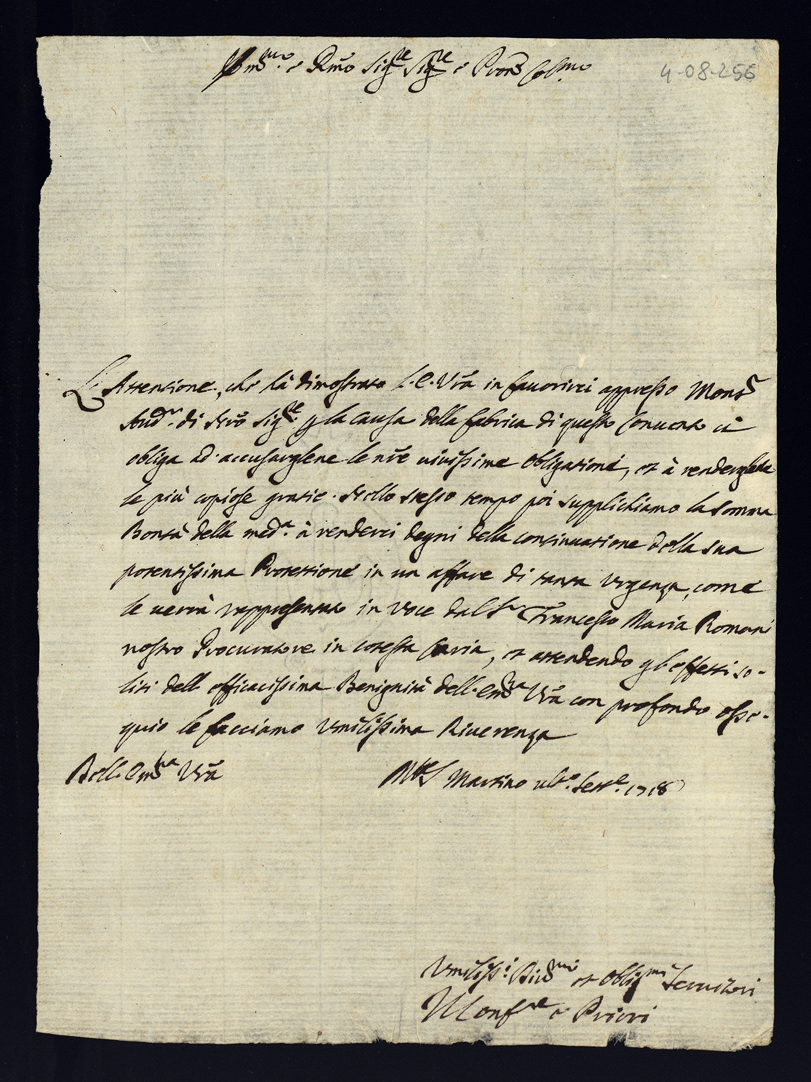 Em.mo e Rmo Sig.re Sig.re e Pron Col.mo
4-08-256
L'Attentione, che hà dimostrato l'E. Vra in favorirci appresso Mons.r
Aud.r di Nro Sig.re p la causa della fabrica di questo Convento ci
obliga ad accusarglene le nre vivissime obligationi, et à renderglene
le più copiose gratie. Nello stesso tempo poi supplichiamo la somma
Bontà della med.a à renderci degni della continuatione della sua
potentissima Protettione in un affare di tanta urgenza, come
le verrà rappresentato in voce dal Sr Francesco Maria Romani
nostro Procuratore in cotesta Curia, et attendendo gl'effetti so-
liti dell'efficacissima Benignità dell'Em.za Vra con profondo osse-
quio le facciamo Umilissima Riverenza
Dell'Em.za Vra
Martino ult.o Sett.e 1718
Umiliss.i Div.mi et Oblig.mi Servitori
Il Conf.re e Priori